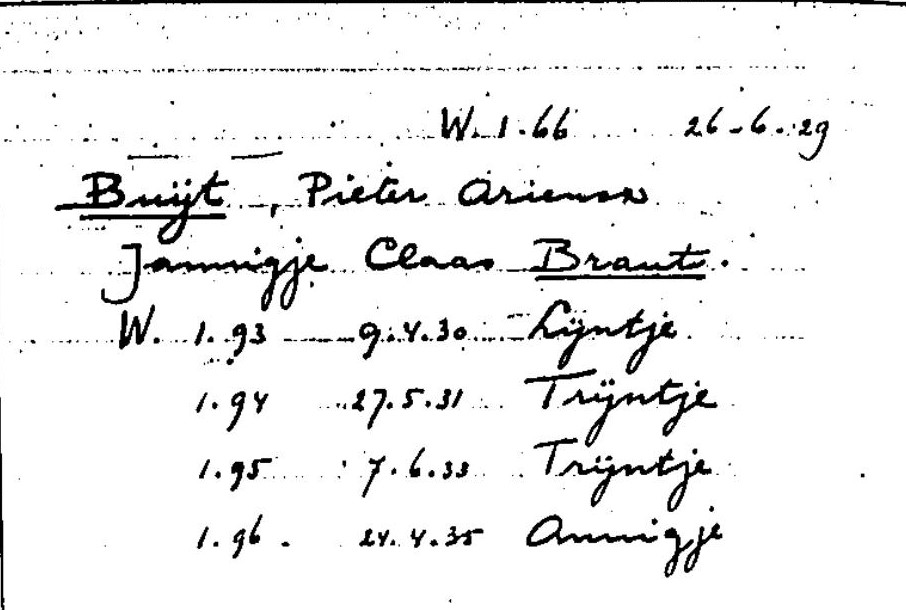 W. 1.66 26-6-29
Buijt, Pieter Ariensn
Jannigje Claas Braut.
W. 1.93 9.4.30 Lijntje
1.94 27.5.31 Trijntje
1.95 7.6.33 Trijntje
1.96. 24.4.35 Annigje